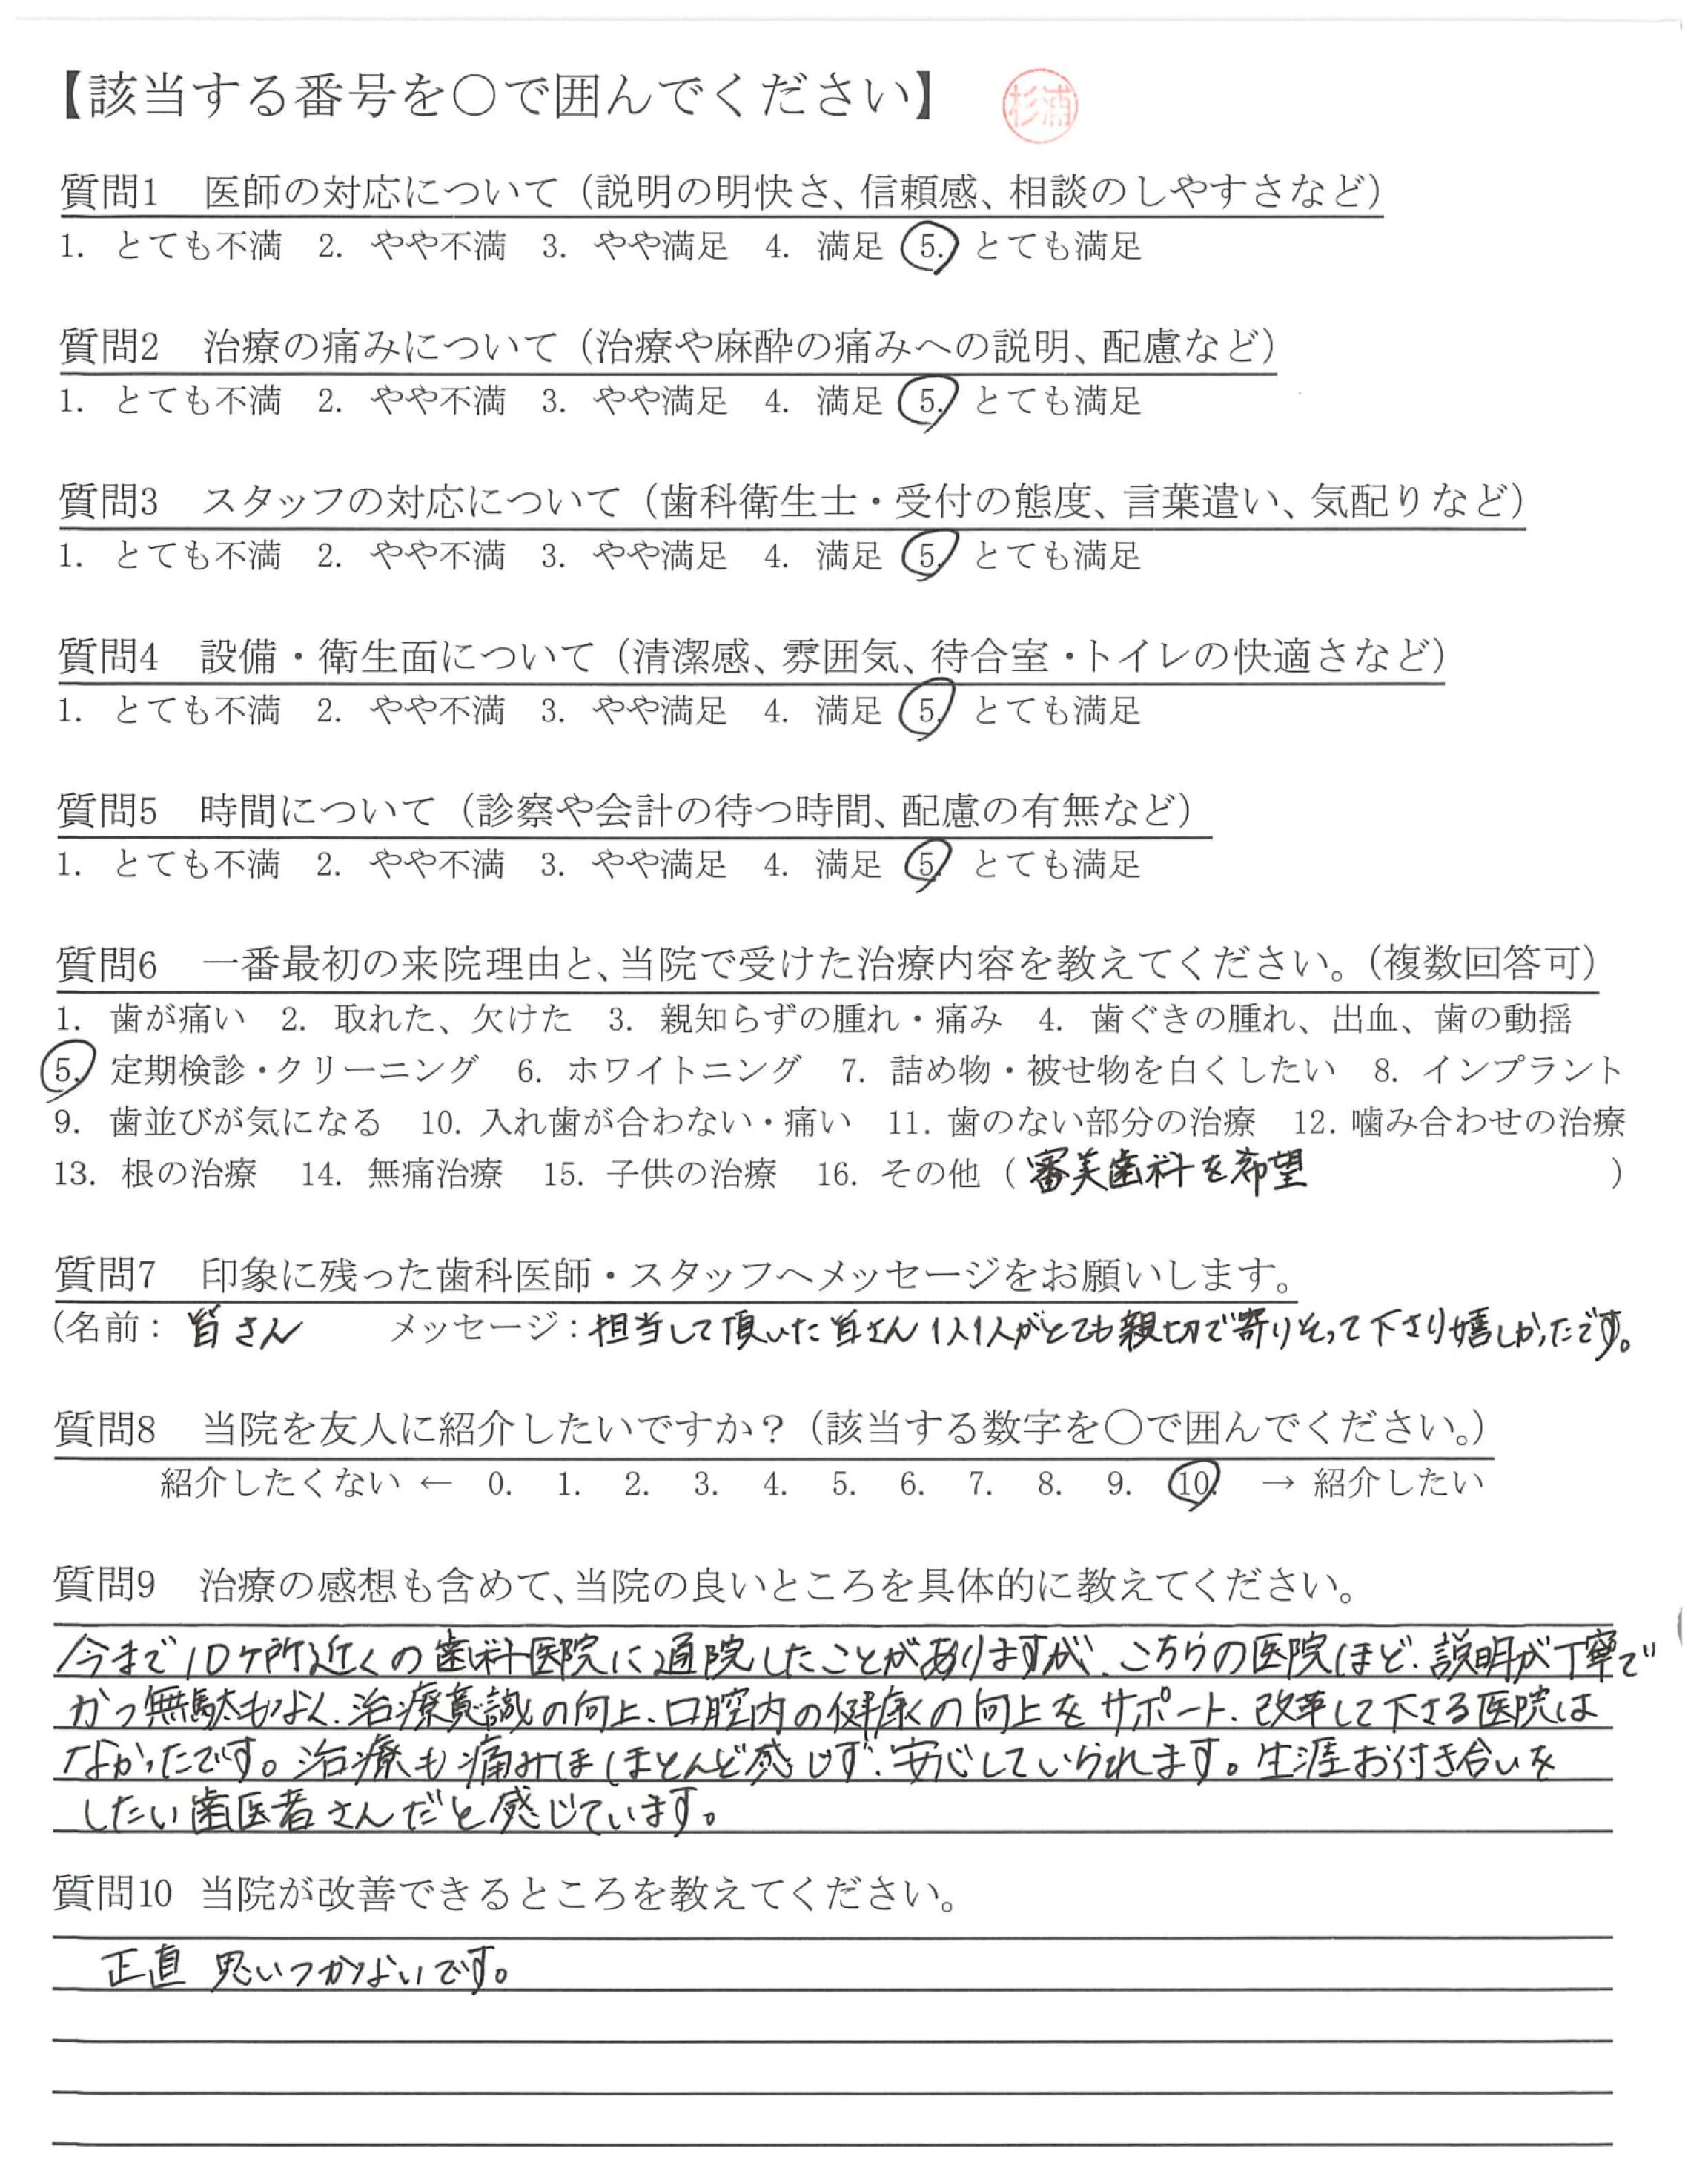 【該当する番号を〇で囲んでください】 杉浦
質問1 医師の対応について（説明の明快さ、信頼感、相談のしやすさなど）
1. とても不満 2. やや不満 3. やや満足 4. 満足 5. とても満足
質問2 治療の痛みについて（治療や麻酔の痛みへの説明、配慮など）
1. とても不満 2. やや不満 3. やや満足 4. 満足 5. とても満足
質問3 スタッフの対応について（歯科衛生士・受付の態度、言葉遣い、気配りなど）
1. とても不満 2. やや不満 3. やや満足 4. 満足 5. とても満足
質問4 設備・衛生面について（清潔感、雰囲気、待合室・トイレの快適さなど）
1. とても不満 2. やや不満 3. やや満足 4. 満足 5. とても満足
質問5 時間について（診察や会計の待つ時間、配慮の有無など）
1. とても不満 2. やや不満 3. やや満足 4. 満足 5. とても満足
質問6 一番最初の来院理由と、当院で受けた治療内容を教えてください。（複数回答可）
1. 歯が痛い 2. 取れた、欠けた 3. 親知らずの腫れ・痛み 4. 歯ぐきの腫れ、出血、歯の動揺
5. 定期検診・クリーニング 6. ホワイトニング 7. 詰め物・被せ物を白くしたい 8. インプラント
9. 歯並びが気になる 10. 入れ歯が合わない・痛い 11. 歯のない部分の治療 12. 噛み合わせの治療
13. 根の治療 14. 無痛治療 15. 子供の治療 16. その他（審美歯科を希望）
質問7 印象に残った歯科医師・スタッフへメッセージをお願いします。
（名前：皆さん メッセージ：担当して頂いた皆さん1人1人がとても親切で寄りそって下さり嬉しかったです。
質問8 当院を友人に紹介したいですか？（該当する数字を〇で囲んでください。）
紹介したくない ← 0. 1. 2. 3. 4. 5. 6. 7. 8. 9. 10. → 紹介したい
質問9 治療の感想も含めて、当院の良いところを具体的に教えてください。
今まで10ヶ所近くの歯科医院に通院したことがありますが、こちらの医院ほど、説明が丁寧で
かつ無駄もなく、治療意識の向上、口腔内の健康の向上をサポート、改革して下さる医院は
なかったです。治療も痛みはほとんど感じず、安心していられます。生涯お付き合いを
したい歯医者さんだと感じています。
質問10 当院が改善できるところを教えてください。
正直 思いつかないです。